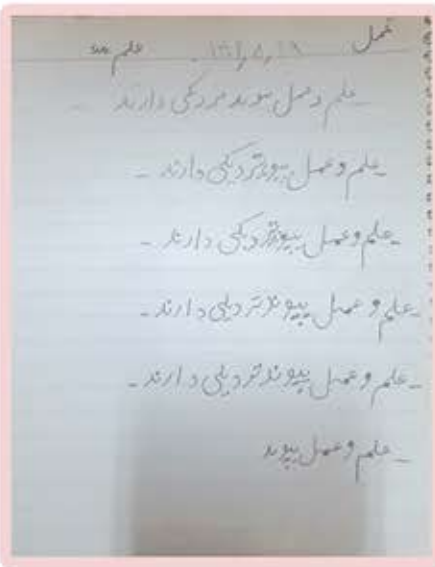 عمل علم
علم و عمل پیوند نزدیکی دارند -
علم و عمل پیوند نزدیکی دارند -
علم و عمل پیوند نزدیکی دارند -
علم و عمل پیوند نزدیکی دارند -
علم و عمل پیوند نزدیکی دارند -
علم و عمل پیوند